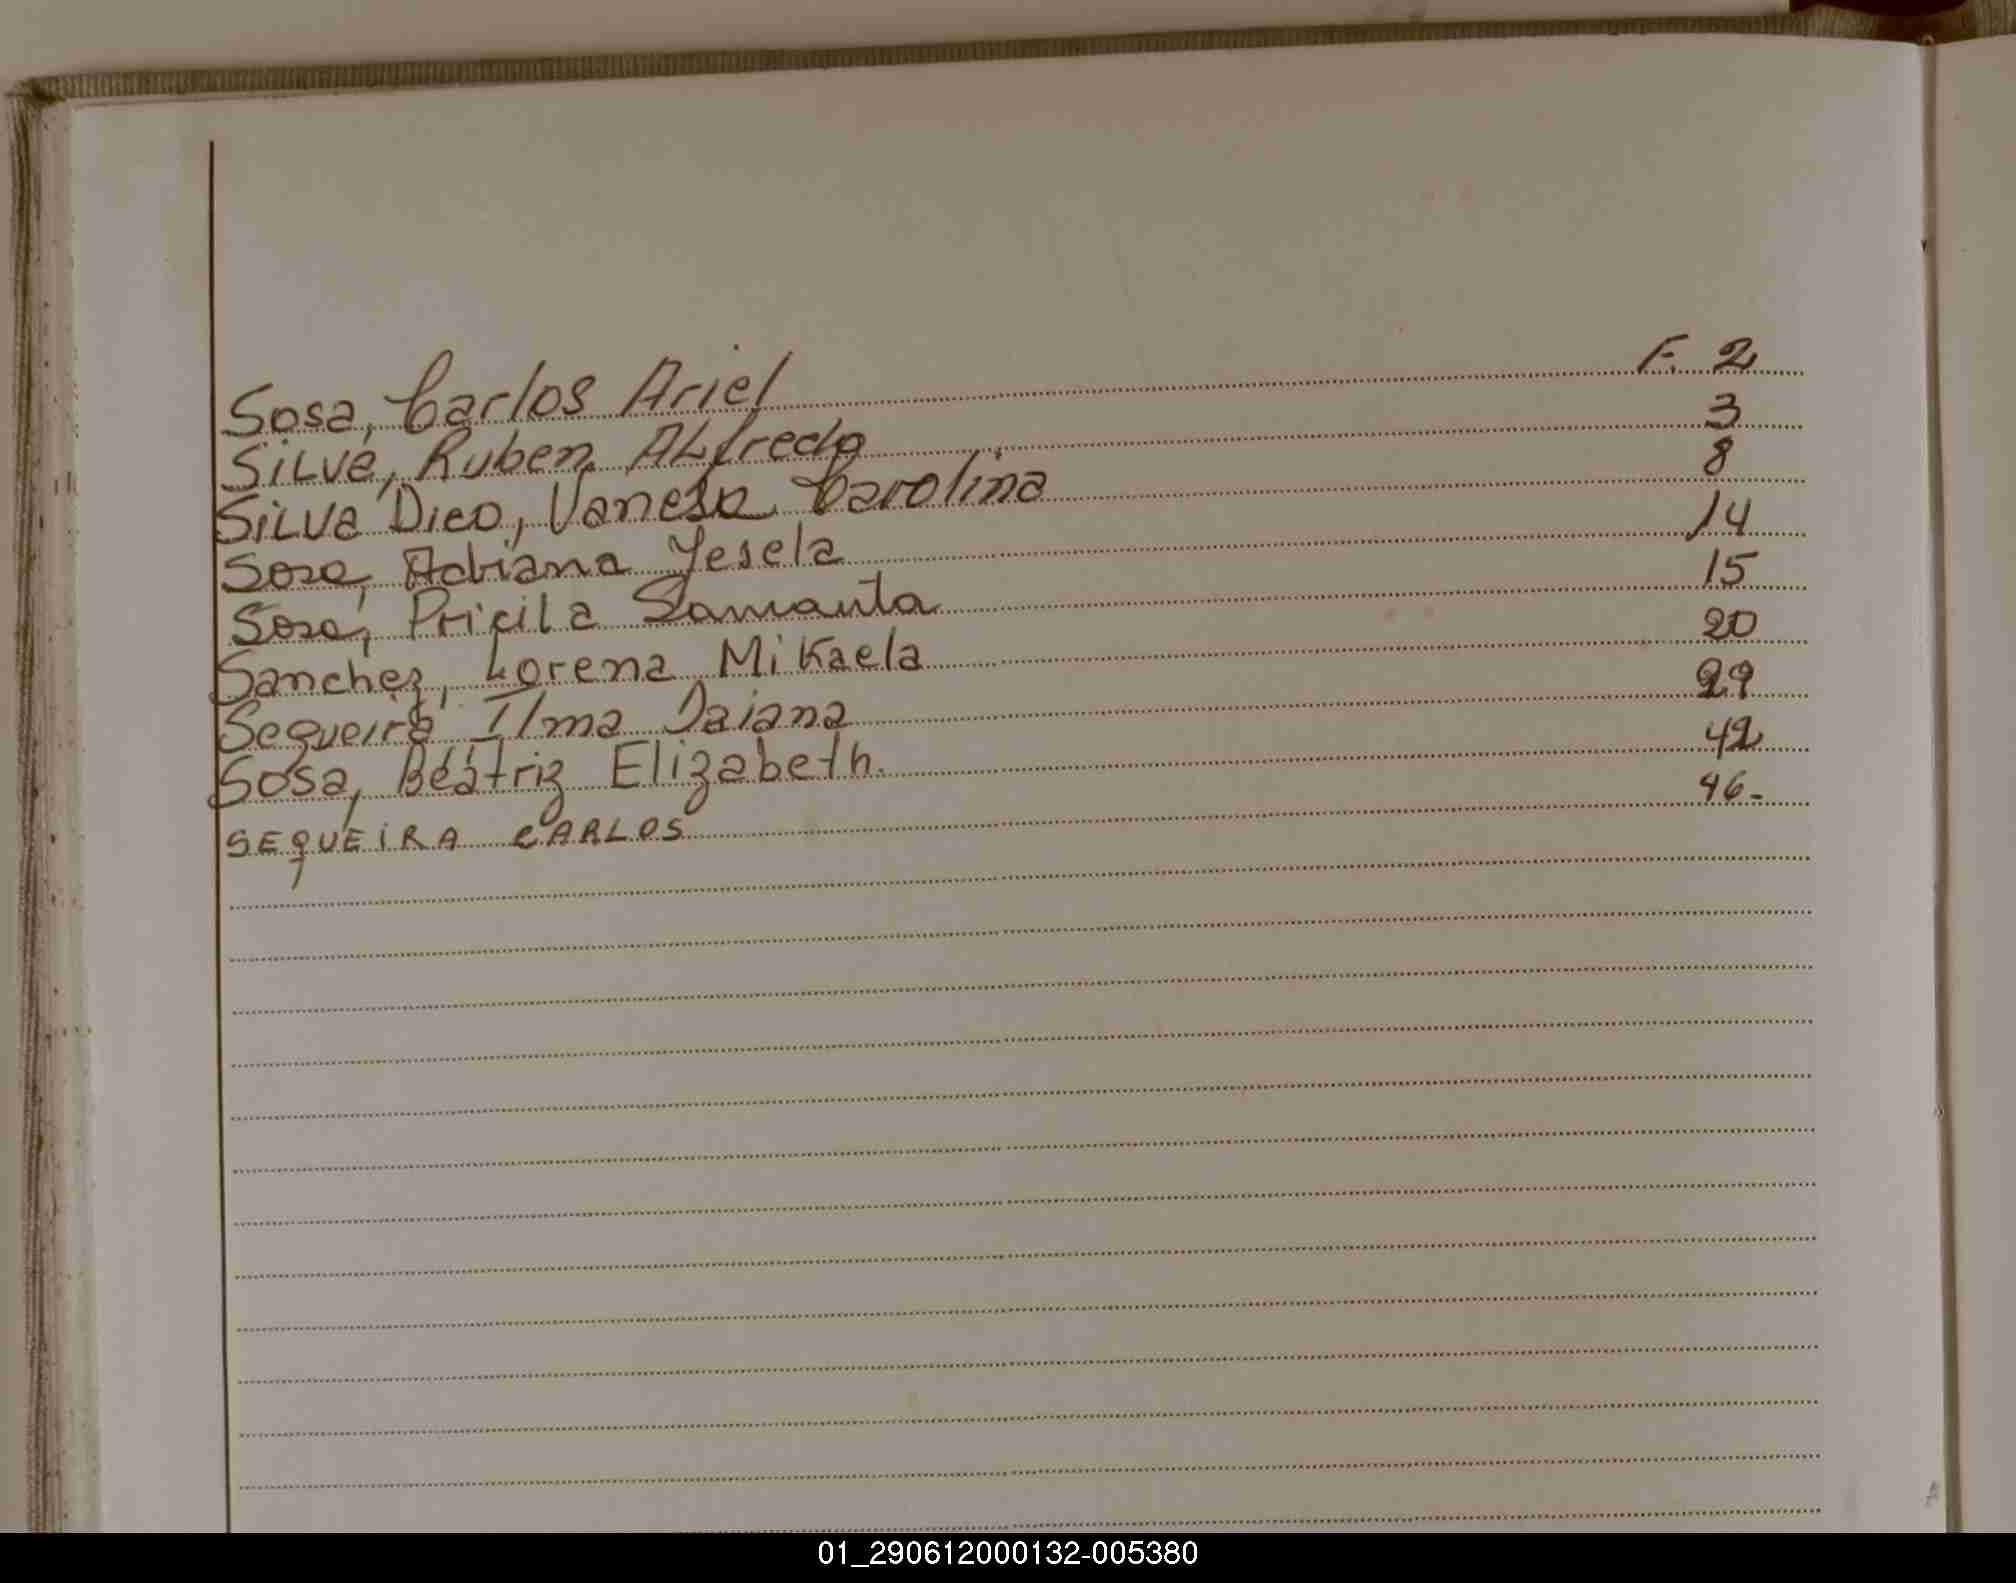 Sosa, Carlos Ariel F. 2
Silva, Ruben Alfredo 3
Silva Dieo, Vanesa Carolina 8
Sosa, Adriana Yesela 14
Sosa, Pricila Samanta 15
Sanchez, Lorena Mikaela 20
Sequeira Ilma Daiana 29
Sosa, Beatriz Elizabeth. 42
SEQUEIRA CARLOS 46-
01_290612000132-005380